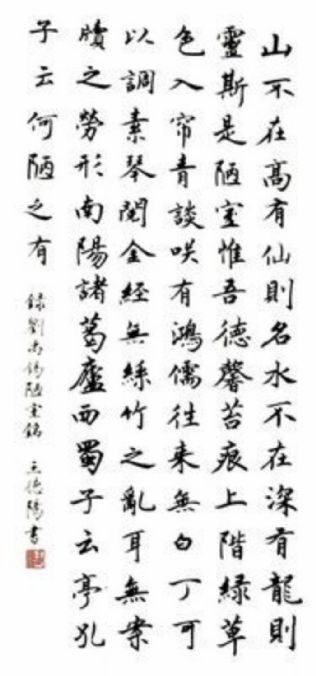 山不在高有仙則名水不在深有龍則
靈斯是陋室惟吾德馨苔痕上階綠草
色入帘青談咲有鴻儒往来無白丁可
以調素琴閱金經無絲竹之亂耳無案
牘之勞形南陽諸葛廬西蜀子云亭孔
子云何陋之有
録劉禹錫陋室銘 王德陽書